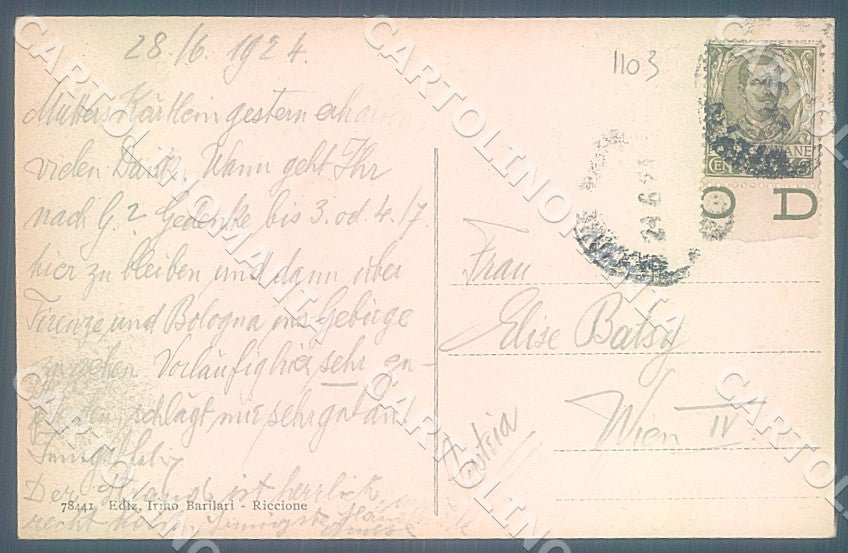 28./6. 1924.
1103
Mutters Kärtlein gestern erhalten
vielen Dank. Wann geht Ihr
nach G.? Gedenke bis 3. od. 4./7.
hier zu bleiben und dann über
Firenze und Bologna ins Gebirge
zu gehen. Vorläufig hier sehr an-
schlägt mir sehr gut an!
Der Strand ist herrlich
recht
78441 Ediz. Irino Barilari - Riccione
O D
Frau
Elise Batsy
Wien IV.
Austria
CARTOLINOMANIA